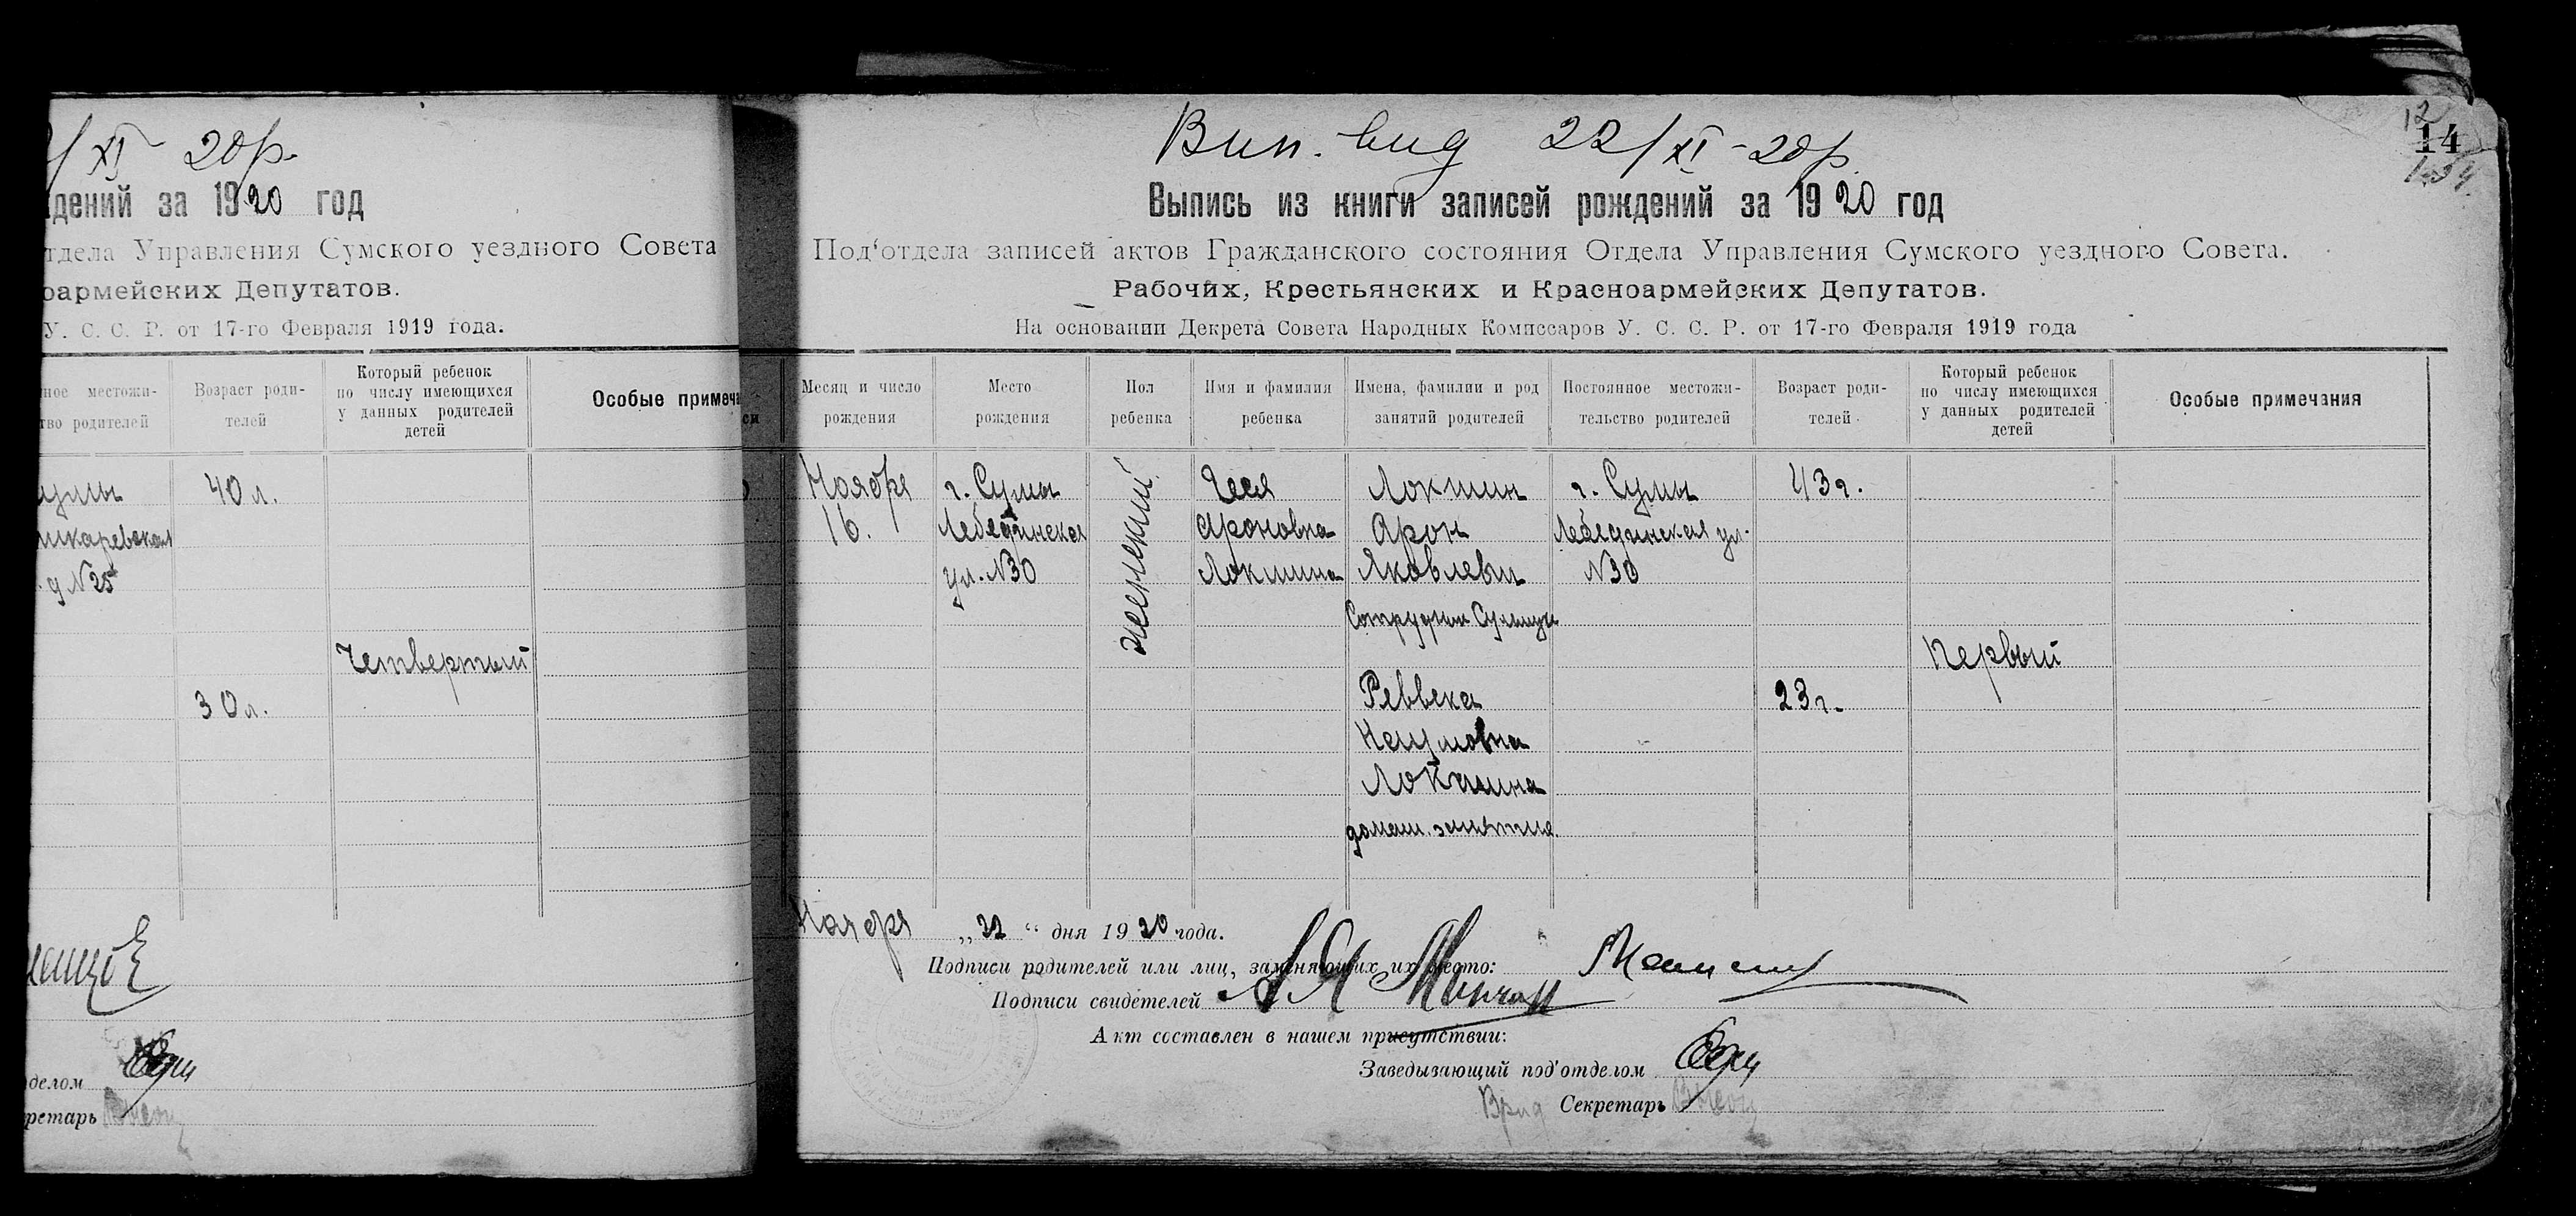 /XI - 20р.
дений за 1920 год
тдела Управления Сумского уездного Совета
оармейских Депутатов.
У. С. С. Р. от 17-го Февраля 1919 года.
ное местожи-
тво родителей
Возраст роди-
телей
Который ребенок
по числу имеющихся
у данных родителей
детей
Особые примеча
умы
40 л.
шкаревская
д N25
Четвертый
30 л.
делом
кретарь
Вип. вид 22/XI - 20р.
12
14
Выпись из книги записей рождений за 1920 год
Под'отдела записей актов Гражданского состояния Отдела Управления Сумского уездного Совета.
Рабочих, Крестьянских и Красноармейских Депутатов.
На основании Декрета Совета Народных Комиссаров У. С. С. Р. от 17-го Февраля 1919 года
Месяц и число
рождения
Место
рождения
Пол
ребенка
Имя и фамилия
ребенка
Имена, фамилии и род
занятий родителей
Постоянное местожи-
тельство родителей
Возраст роди-
телей.
Который ребенок
по числу имеющихся
у данных родителей
детей
Особые примечания
Ноября
16.
г. Сумы
Лебединская
ул. N30
женский
Ароновна
Локшина
Локшин
Арон
Яковлевич
Реввека
Наумовна
Локшина
домаш. занятия.
г. Сумы
Лебединская ул.
N30
43 г.
23 г.
Первый
Ноября „22“ дня 1920 года.
Подписи родителей или лиц, заменяющих их место:
Подписи свидетелей
Акт составлен в нашем присутствии:
Заведывающий под'отделом
Врид Секретарь